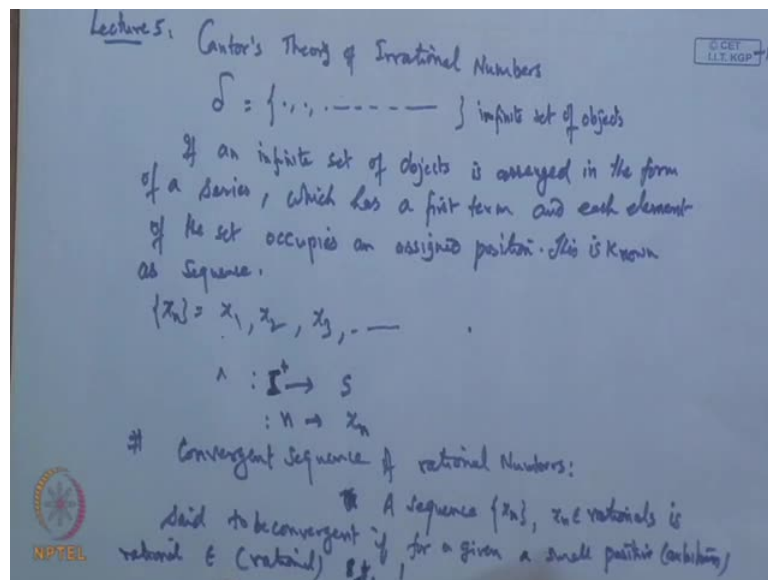 Lecture 5: Cantor's Theory of Irrational Numbers
© CET
I.I.T. KGP
S = {., ., . ------- } infinite set of objects
If an infinite set of objects is arranged in the form
of a series, which has a first term and each element
of the set occupies an assigned position. This is known
as sequence.
{xn} = x1, x2, x3, . ——
: I+ → S
: n → xn
# Convergent sequence of rational Numbers:
A sequence {xn}, xn ∈ rationals is
said to be convergent if for a given a small positive (arbitrary)
rational ∈ (rational)
NPTEL